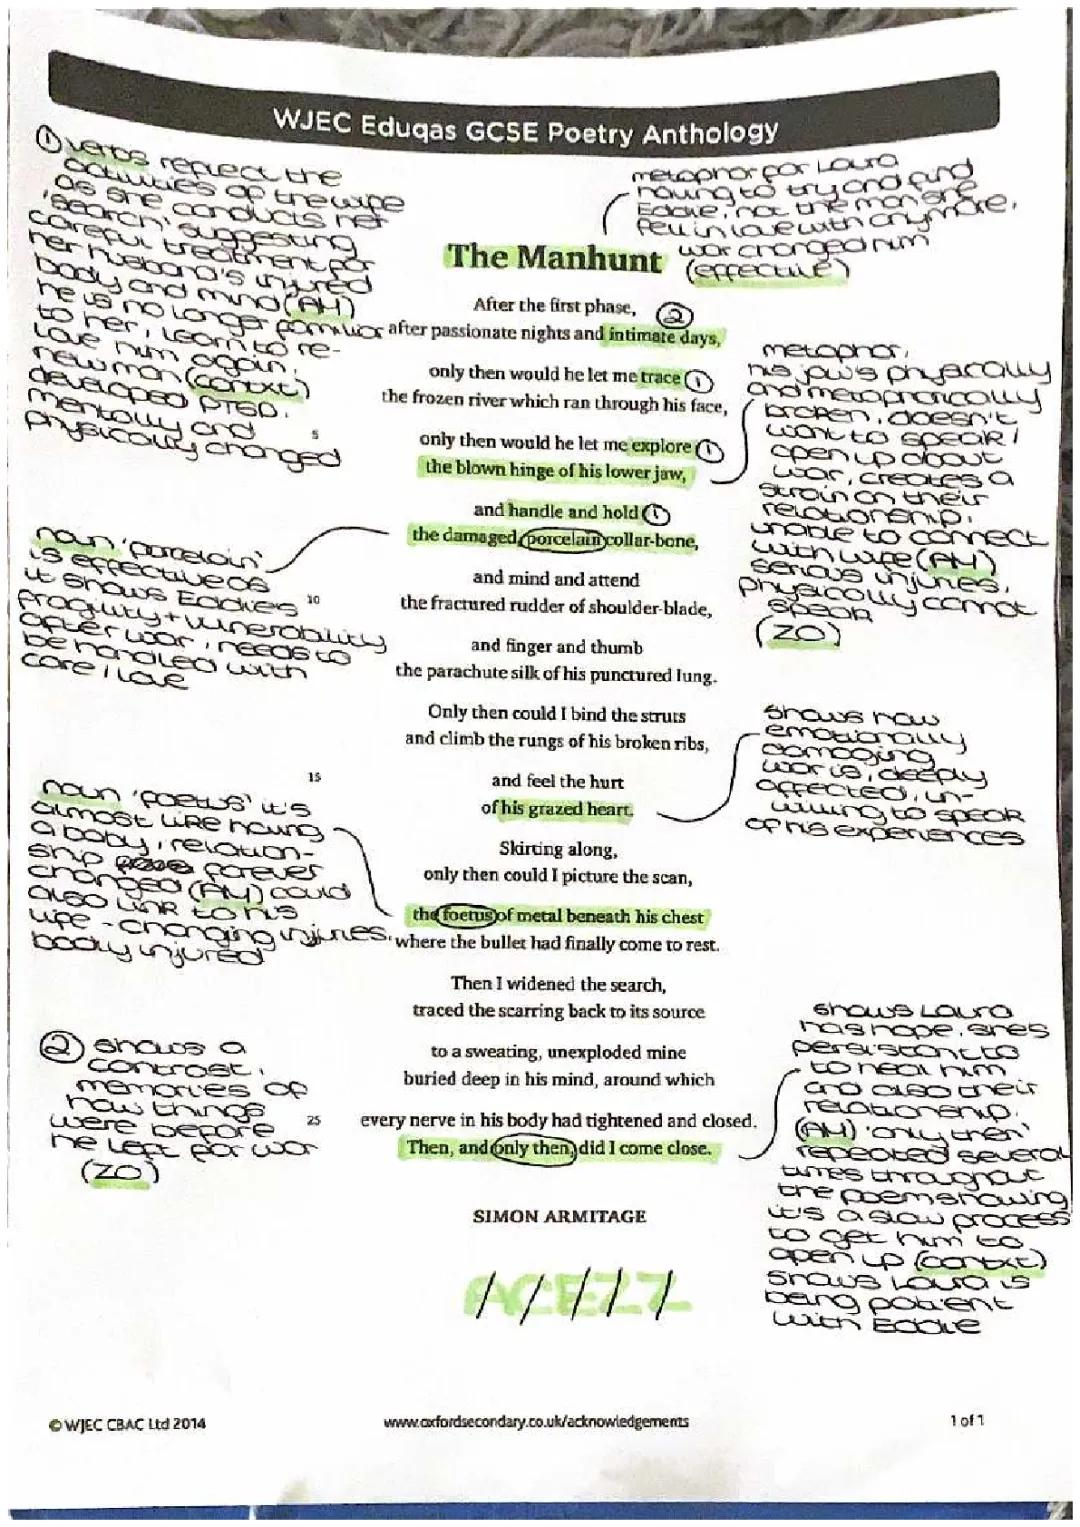 WJEC Eduqas GCSE Poetry Anthology
① verbs reflect the
activities of the wife
as she conducts her
'search', suggesting
careful treatment for
her husband's injured
body and mind (AM)
he is no longer familiar
to her, learn to re-
love him again,
new man (contxt)
developed PTSD.
mentally and
physically changed
metaphor for Laura
having to try and find
Eddie, not the man she
fell in love with anymore,
war changed him
(effective)
The Manhunt
After the first phase, ②
after passionate nights and intimate days,
only then would he let me trace ①
the frozen river which ran through his face,
5
only then would he let me explore ①
the blown hinge of his lower jaw,
and handle and hold ①
the damaged, porcelain collar-bone,
and mind and attend
10
the fractured rudder of shoulder-blade,
and finger and thumb
the parachute silk of his punctured lung.
Only then could I bind the struts
and climb the rungs of his broken ribs,
15
and feel the hurt
of his grazed heart.
Skirting along,
only then could I picture the scan,
the foetus of metal beneath his chest
where the bullet had finally come to rest.
Then I widened the search,
traced the scarring back to its source
to a sweating, unexploded mine
buried deep in his mind, around which
25
every nerve in his body had tightened and closed.
Then, and only then, did I come close.
SIMON ARMITAGE
ACEZZ
metaphor,
his jaw's physically
and metaphorically
broken, doesn't
want to speak /
open up about
war, creates a
strain on their
relationship.
unable to connect
with wife (AM)
serious injuries,
physically cannot
speak
(ZO)
noun 'porcelain'
is effective as
it shows Eddie's
fragility + vulnerability
after war, needs to
be handled with
care / love
shows how
emotionally
damaging
war is, deeply
affected, un-
willing to speak
of his experiences
noun 'foetus' it's
almost like having
a baby, relation-
ship forever
changed (AM) could
also link to his
life-changing injuries.
badly injured
② shows a
contrast,
memories of
how things
were before
he left for war
(ZO)
shows Laura
has hope. she's
persistant to
to heal him
and also their
relationship.
(AM) 'only then'
repeated several
times throughout
the poem showing
it's a slow process
to get him to
open up (contxt)
shows Laura is
being patient
with Eddie
© WJEC CBAC Ltd 2014
www.oxfordsecondary.co.uk/acknowledgements
1 of 1